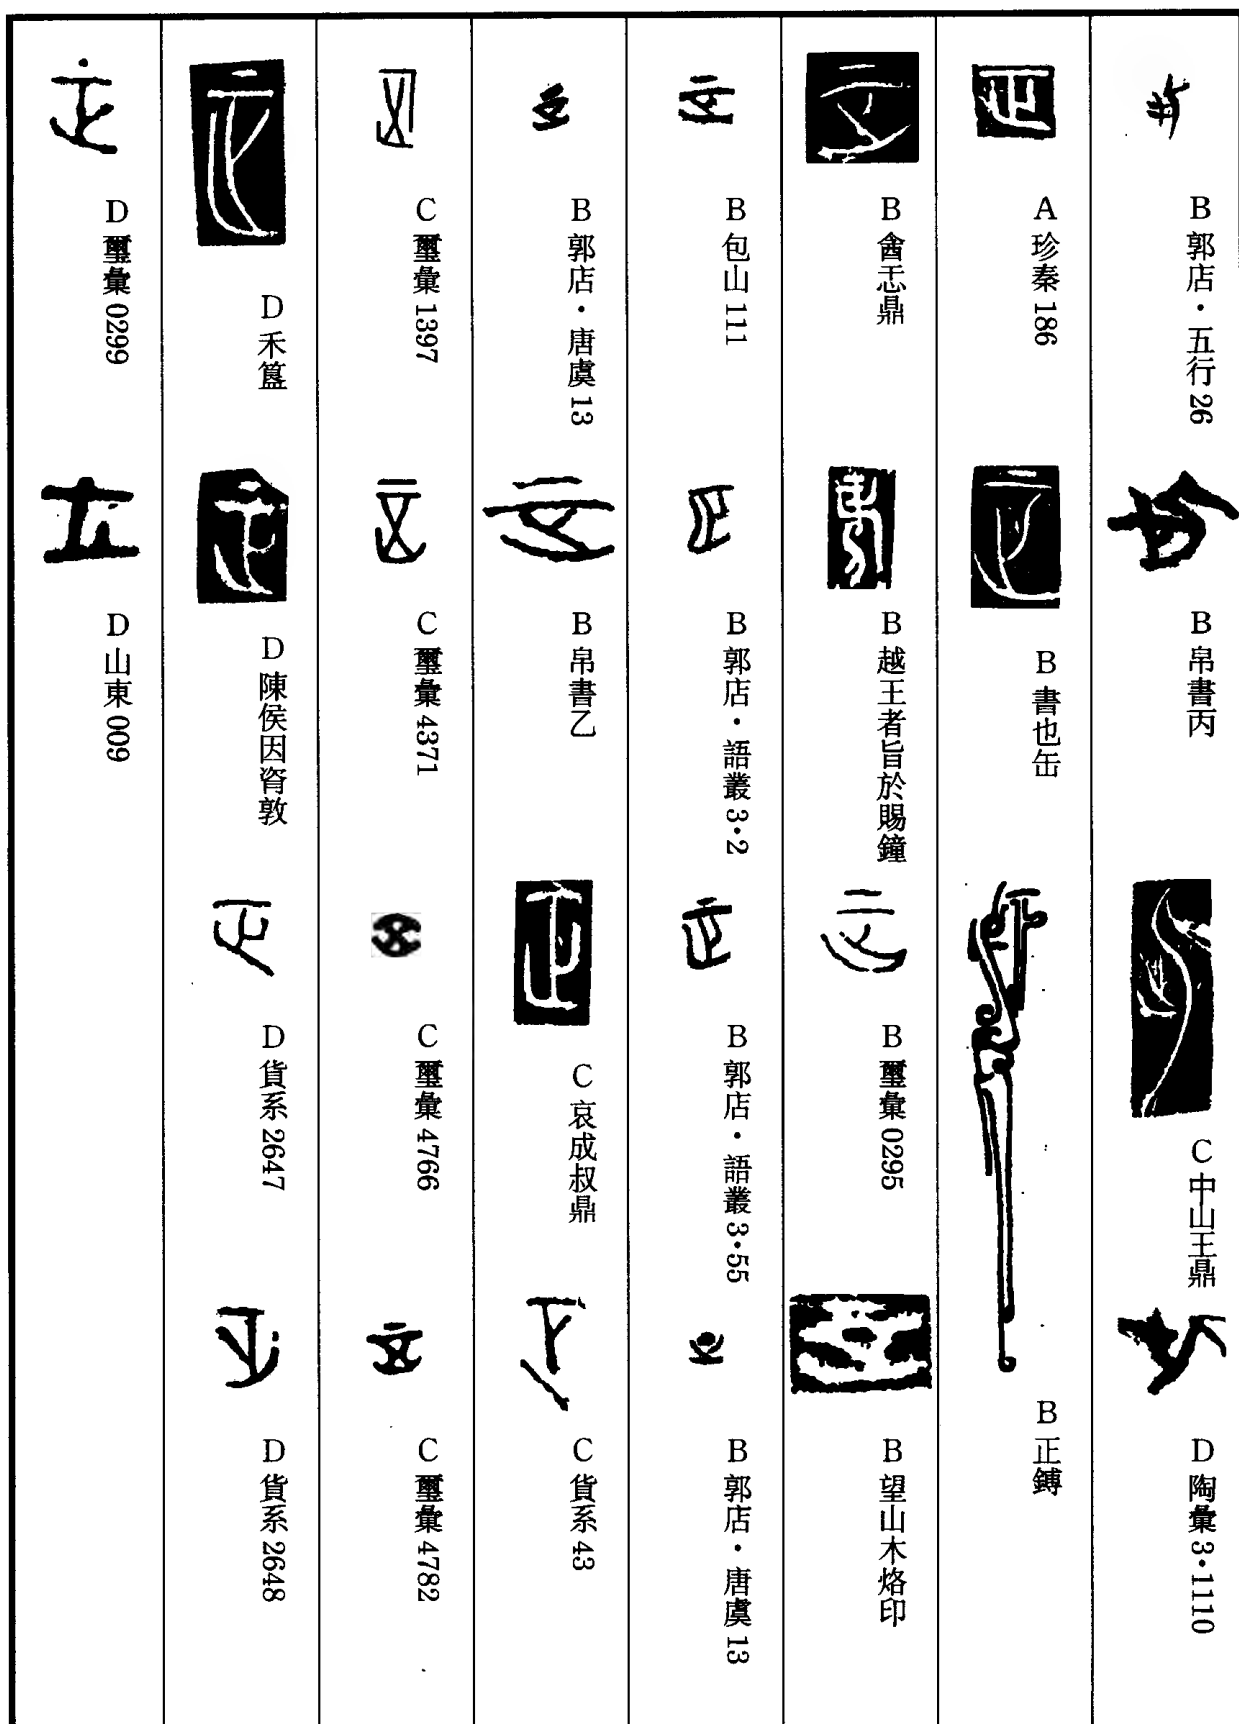 B 郭店・五行 26
B 帛書丙
C 中山王鼎
D 陶彙 3・1110
A 珍秦 186
B 書也缶
B 正鎛
B 酓忎鼎
B 越王者旨於賜鐘
B 璽彙 0295
B 望山木烙印
B 包山 111
B 郭店・語叢 3・2
B 郭店・語叢 3・55
B 郭店・唐虞 13
B 郭店・唐虞 13
B 帛書乙
C 哀成叔鼎
C 貨系 43
C 璽彙 1397
C 璽彙 4371
C 璽彙 4766
C 璽彙 4782
D 禾簋
D 陳侯因𬇕敦
D 貨系 2647
D 貨系 2648
D 璽彙 0299
D 山東 009